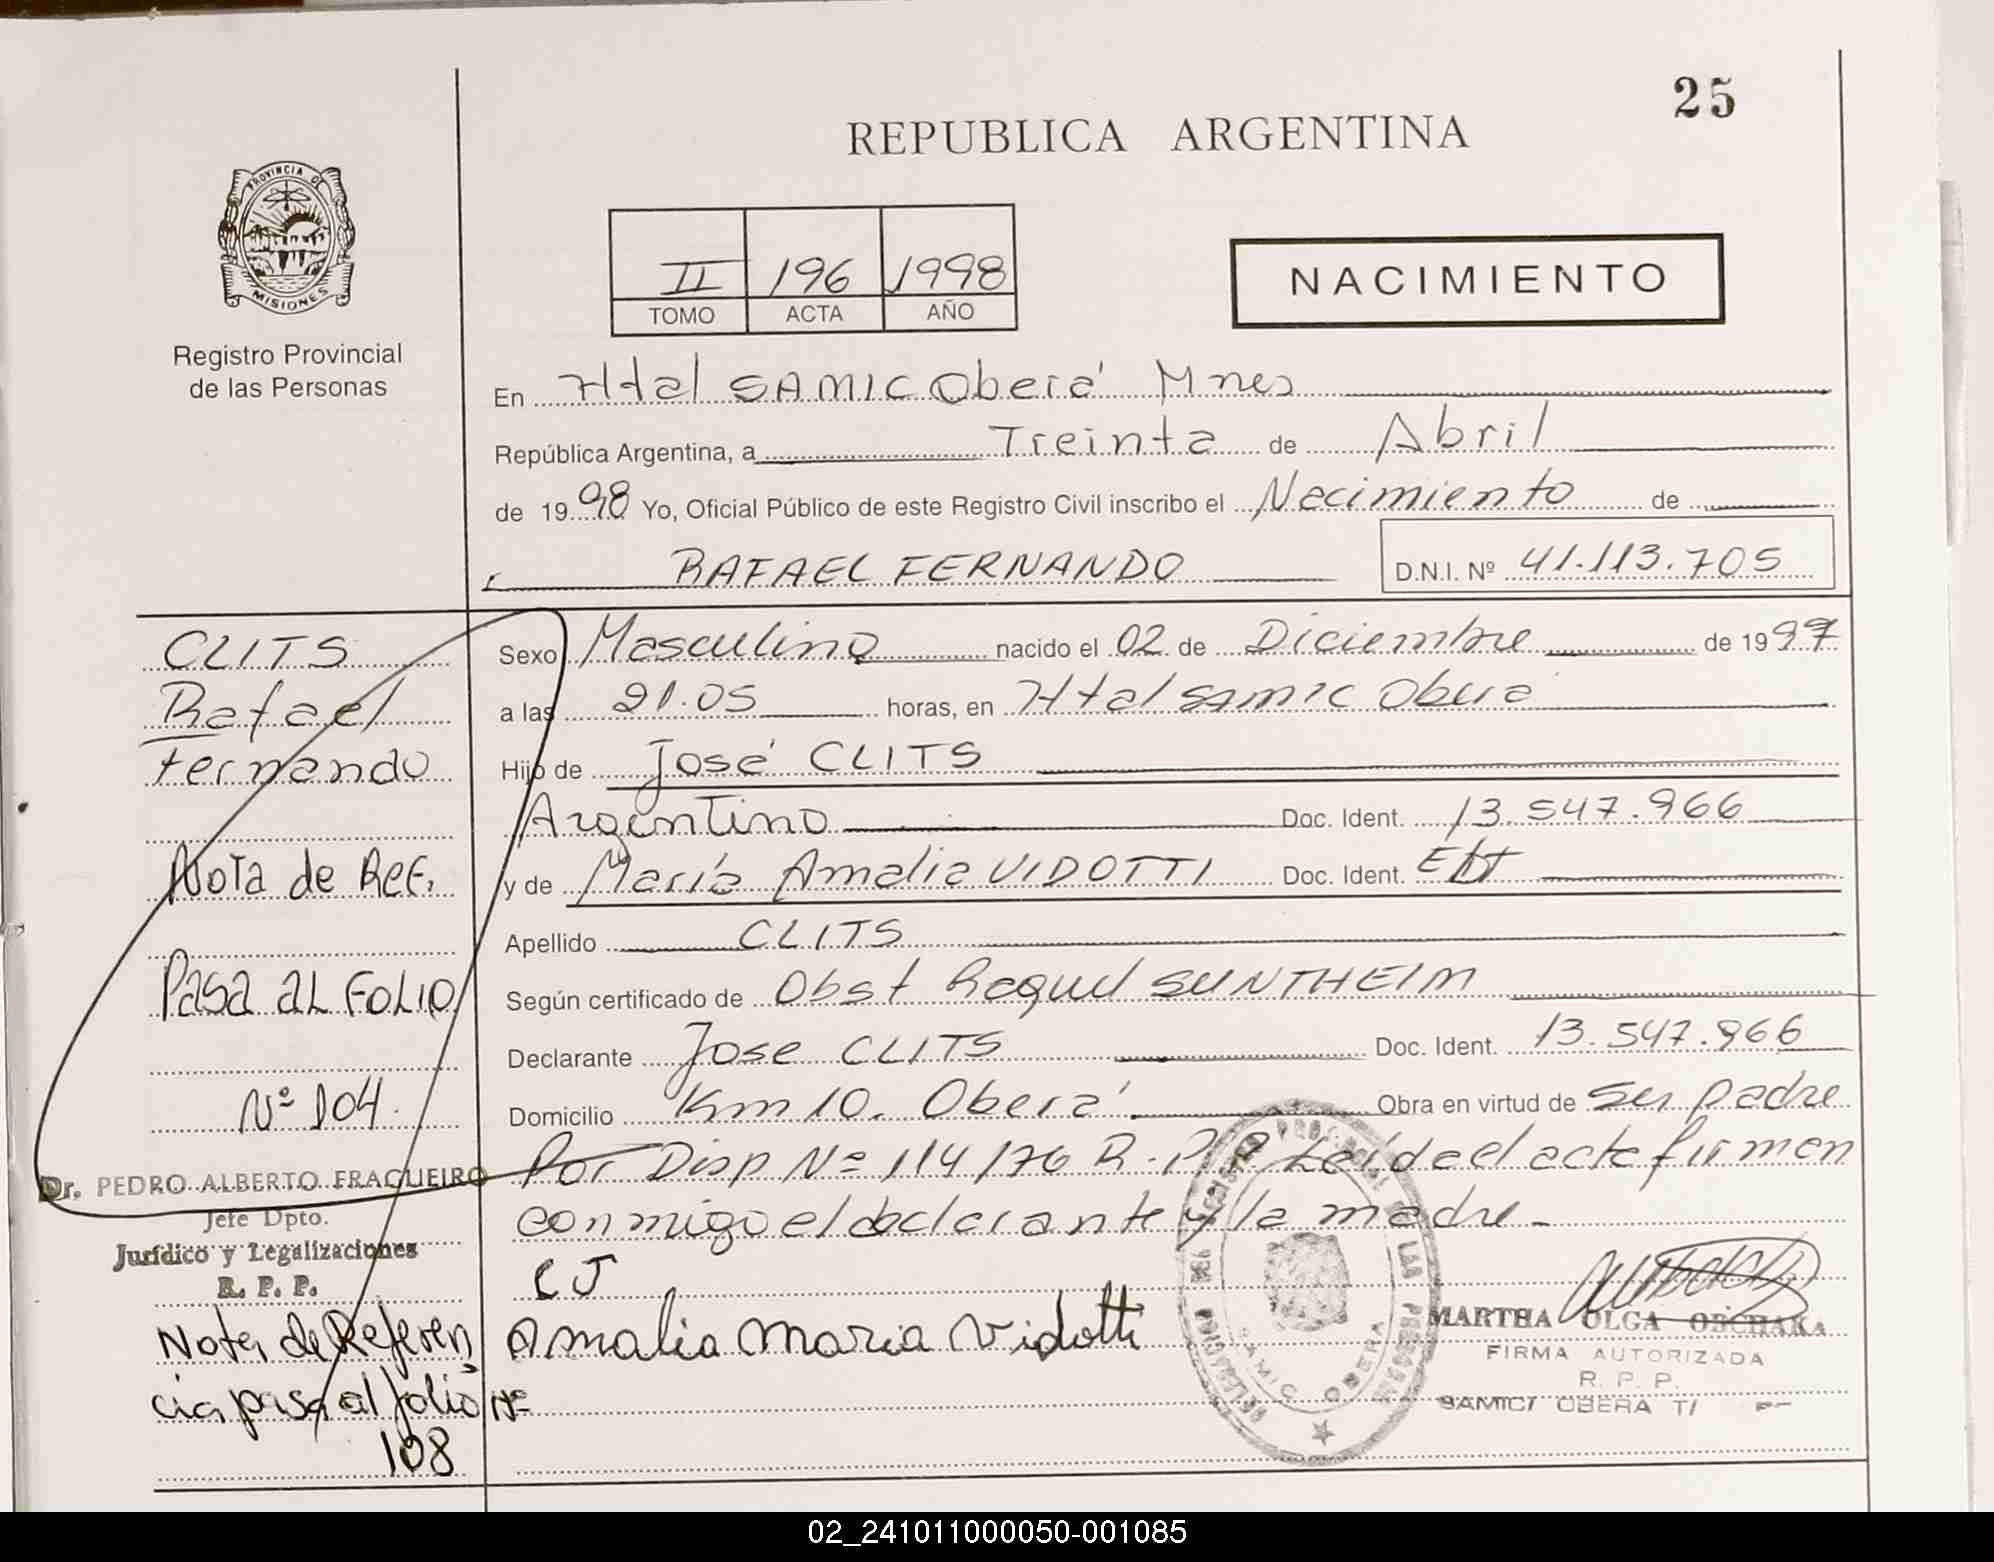 25
REPUBLICA ARGENTINA
PROVINCIA DE
MISIONES
Registro Provincial
de las Personas
II 196 1998
TOMO ACTA AÑO
NACIMIENTO
En Htal SAMIC Oberá Mnes
República Argentina, a Treinta de Abril
de 1998 Yo, Oficial Público de este Registro Civil inscribo el Nacimiento de
RAFAEL FERNANDO D.N.I. Nº 41.113.705
CLITS
Rafael
Fernando
Nota de Ref.
Pasa al Folio
Nº 104.
Dr. PEDRO ALBERTO FRAGUEIRO
Jefe Dpto.
Jurídico y Legalizaciones
R. P. P.
Nota de Referen
cia pasa al folio Nº
108
Sexo Masculino nacido el 02 de Diciembre de 1997
a las 21.05 horas, en Htal SAMIC Oberá
Hijo de José CLITS
Argentino Doc. Ident. 13.547.966
y de María Amalia VIDOTTI Doc. Ident.
Apellido CLITS
Según certificado de Obst Raquel SUNTHEIM
Declarante Jose CLITS Doc. Ident. 13.547.966
Domicilio Km 10. Oberá Obra en virtud de ser padre
Por Disp Nº 114/76 R.P.P. Leída el acta firman
conmigo el declarante y la madre -
CJ
Amalia Maria Vidotti
SAMIC OBERA
MARTHA OLGA OBCHAKA
FIRMA AUTORIZADA
R. P. P.
SAMIC OBERA
02_241011000050-001085